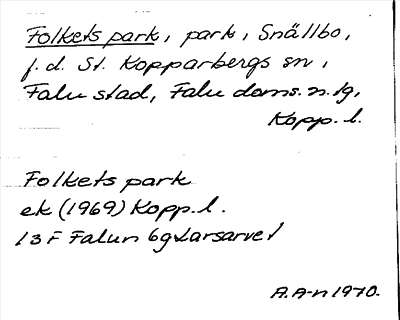 Folkets park, park, Snällbo,
f.d. St. Kopparbergs sn,
Falu stad, Falu doms.n. tg,
Kopp. l.
Folkets park
ek (1969) Kopp. l.
13 F Falun 6g Larsarvet
A.A-n 1970.